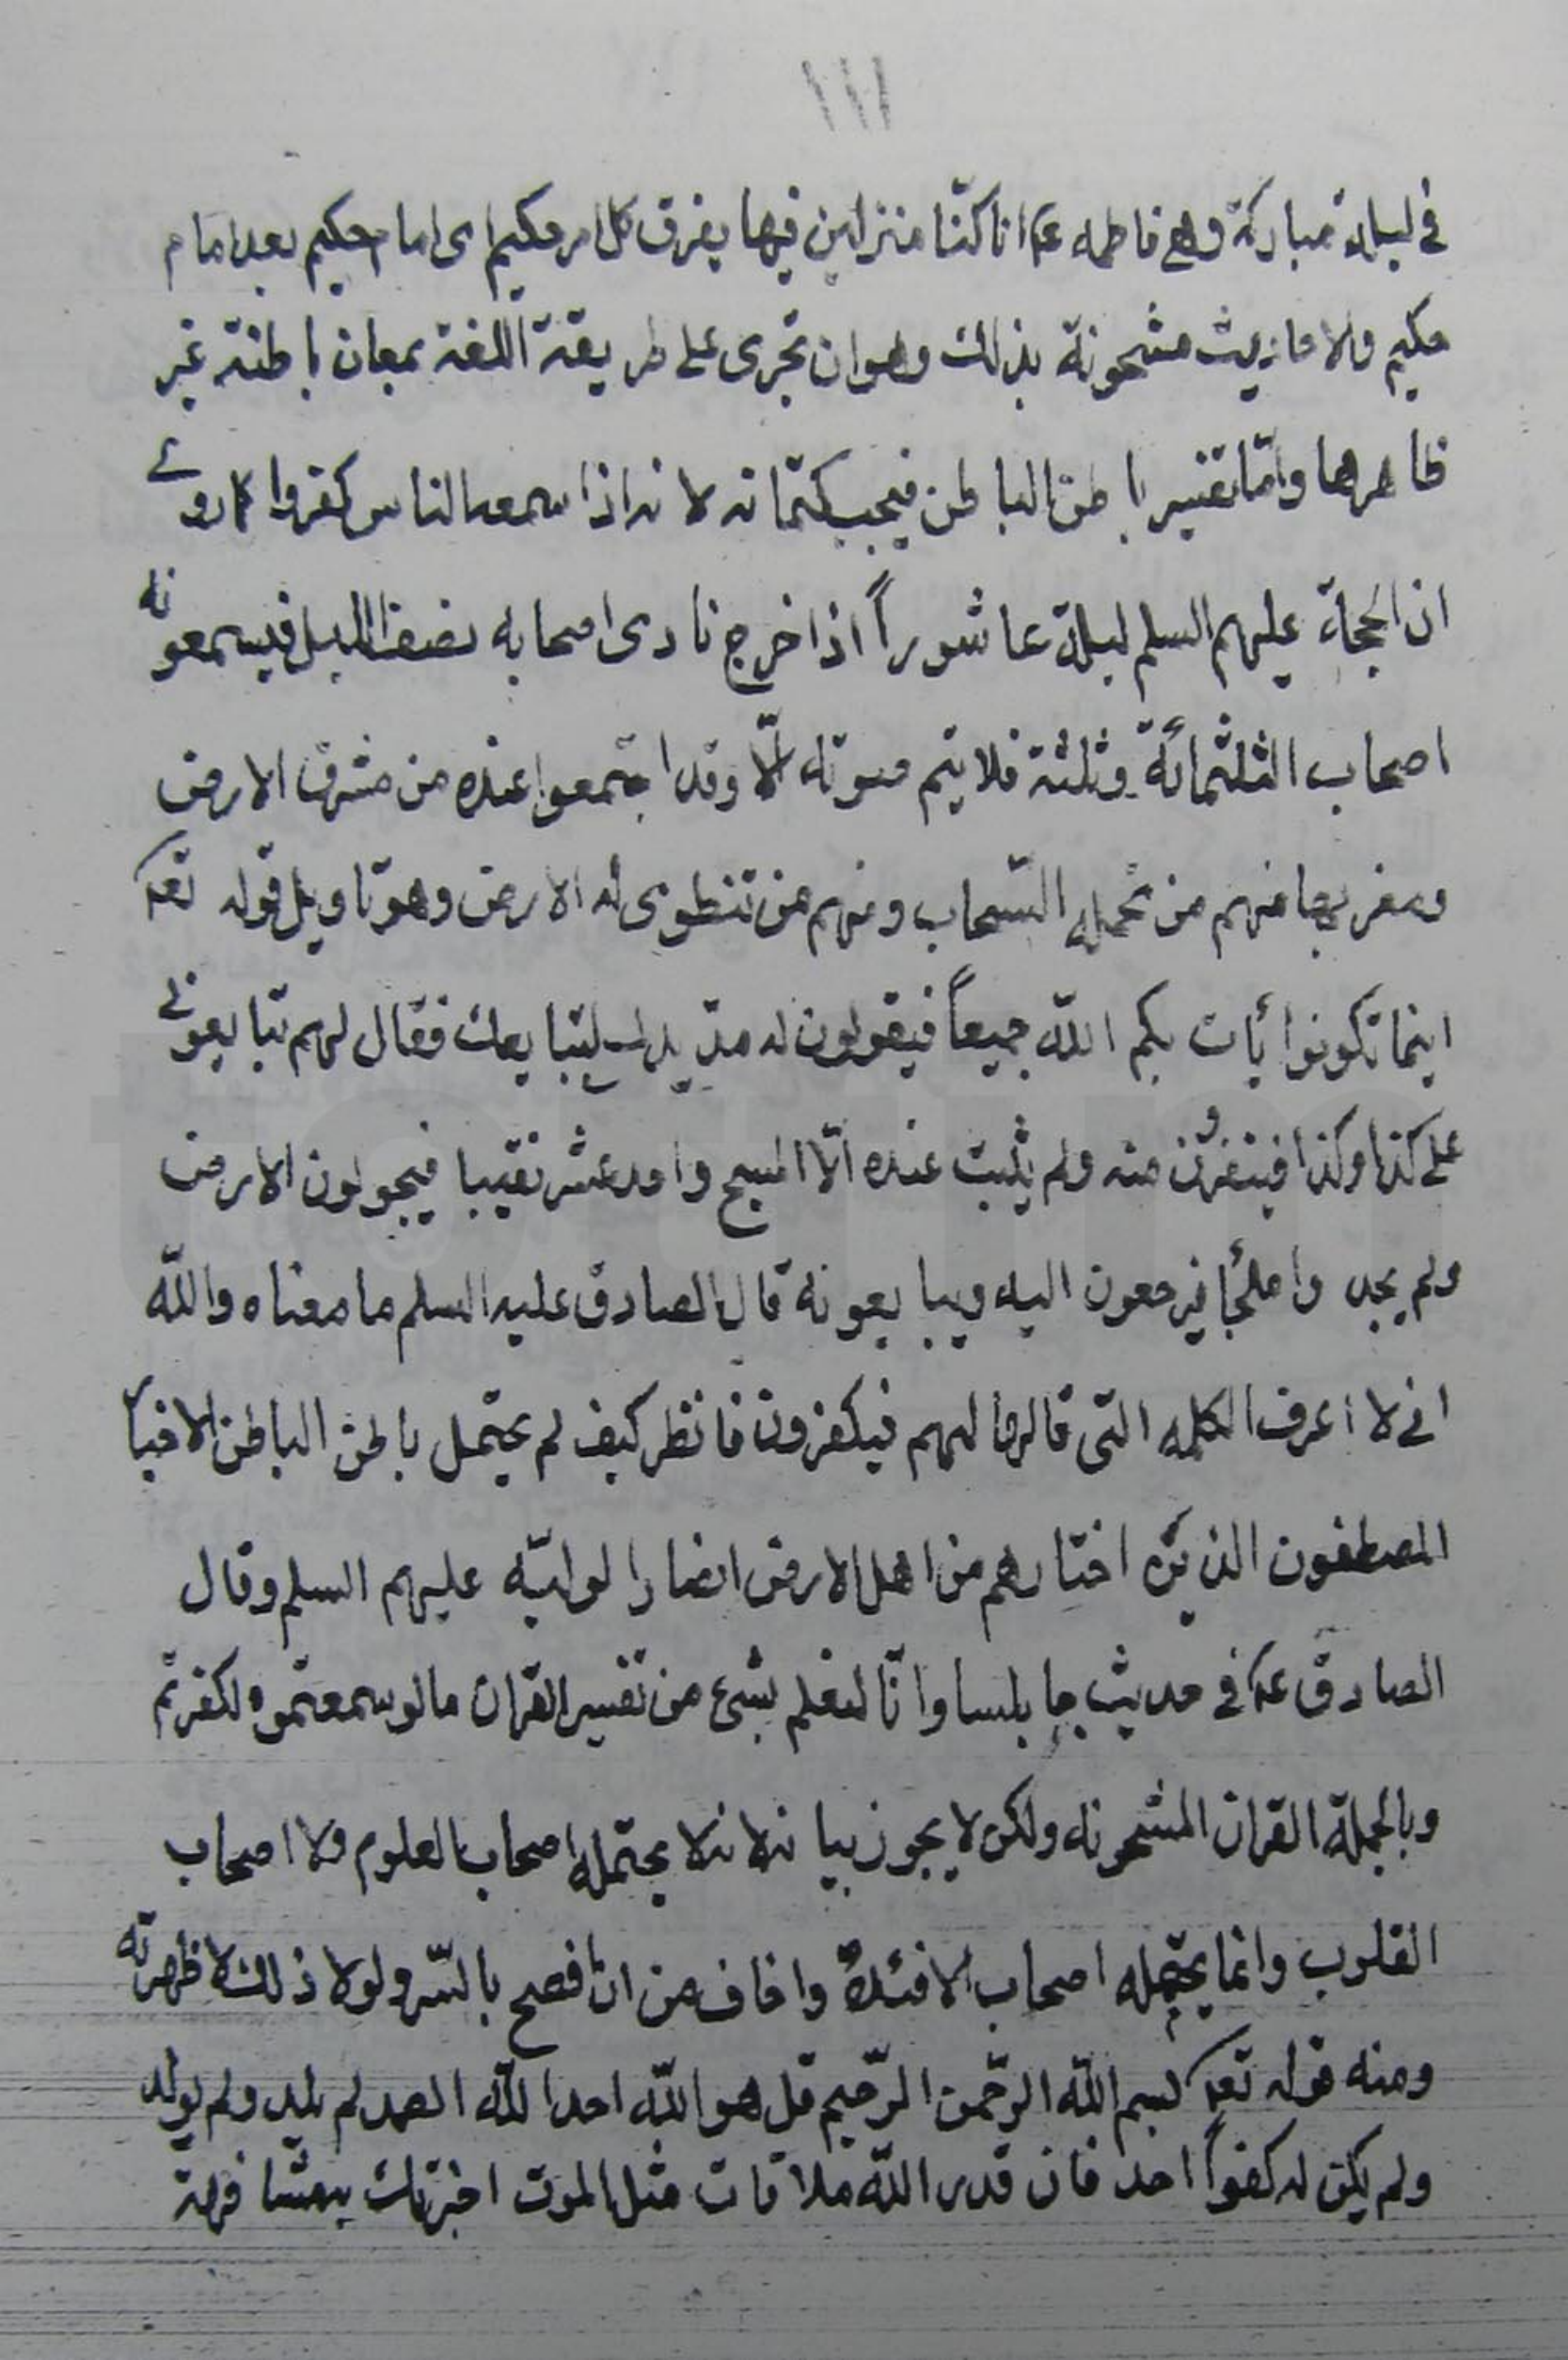 ١١١
في ليلة مباركة وهي فاطمه ع انا كنّا منزلين فيها يفرق كل امر حكيم اى امام حكيم بعد امام
حكيم والاحاديث مشحونة بذلك وهو ان تجرى على طريقة اللغة بمعان باطنة غير
ظاهرها وامّا تفسير باطن الباطن فيجب كتمانه لانه اذا سمعه الناس كفروا كما روى
ان الحجة عليهم السلم ليلة عاشوراً اذا خرج نادى اصحابه نصف الليل فيسمعونه
اصحاب الثلثمائة وثلثة فلا يتم صوته الّا وقد اجتمعوا عنده من مشرق الارض
ومغربها منهم من تحمله السّحاب ومنهم من تنطوى له الارض وهو تاويل قوله تعه
اينما تكونوا يأت بكم اللّه جميعاً فيقولون له مدّ يدك لنبايعك فقال لهم تبايعونى
على كذا وكذا فيتفرقون منه ولم يثبت عنده الّا المسيح واحد عشر نقيبا فيجولون الارض
ولم يجدوا ملجأ فيرجعون اليه ويبايعونه قال الصادق عليه السلم ما معناه واللّه
انى لا اعرف الكلمه التى قالها لهم فيكفرون فانظر كيف لم يحتمل باطن الباطن الاخيار
المصطفون الذين اختارهم من اهل الارض انصارا لوليّه عليهم السلم وقال
الصادق ع في حديث جابلسا وانّا لنعلم بشئ من تفسير القران ما لو سمعتموه لكفرتم
وبالجملة القران المشحونه ولكن لا يجوز بيانه لانه لا يحتمله اصحاب العلوم ولا اصحاب
القلوب وانما يحتمله اصحاب الافئدة واخاف من ان افصح بالسّر ولولا ذلك لاظهرته
ومنه قوله تعه بسم اللّه الرّحمن الرّحيم قل هو اللّه احد اللّه الصمد لم يلد ولم يولد
ولم يكن له كفواً احد فان قدر اللّه ملاقات مثل الموت اخبرتك بيعثا فهة